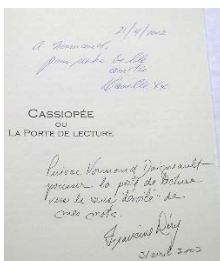 21/4/2002
A Normand,
pour notre belle
amitié
CASSIOPÉE
OU
LA PORTE DE LECTURE
Puisse Normand Daigneault
pousser la porte de lecture
vers le sens dévoilé de
mes mots.
Francine Déry
21 avril 2002